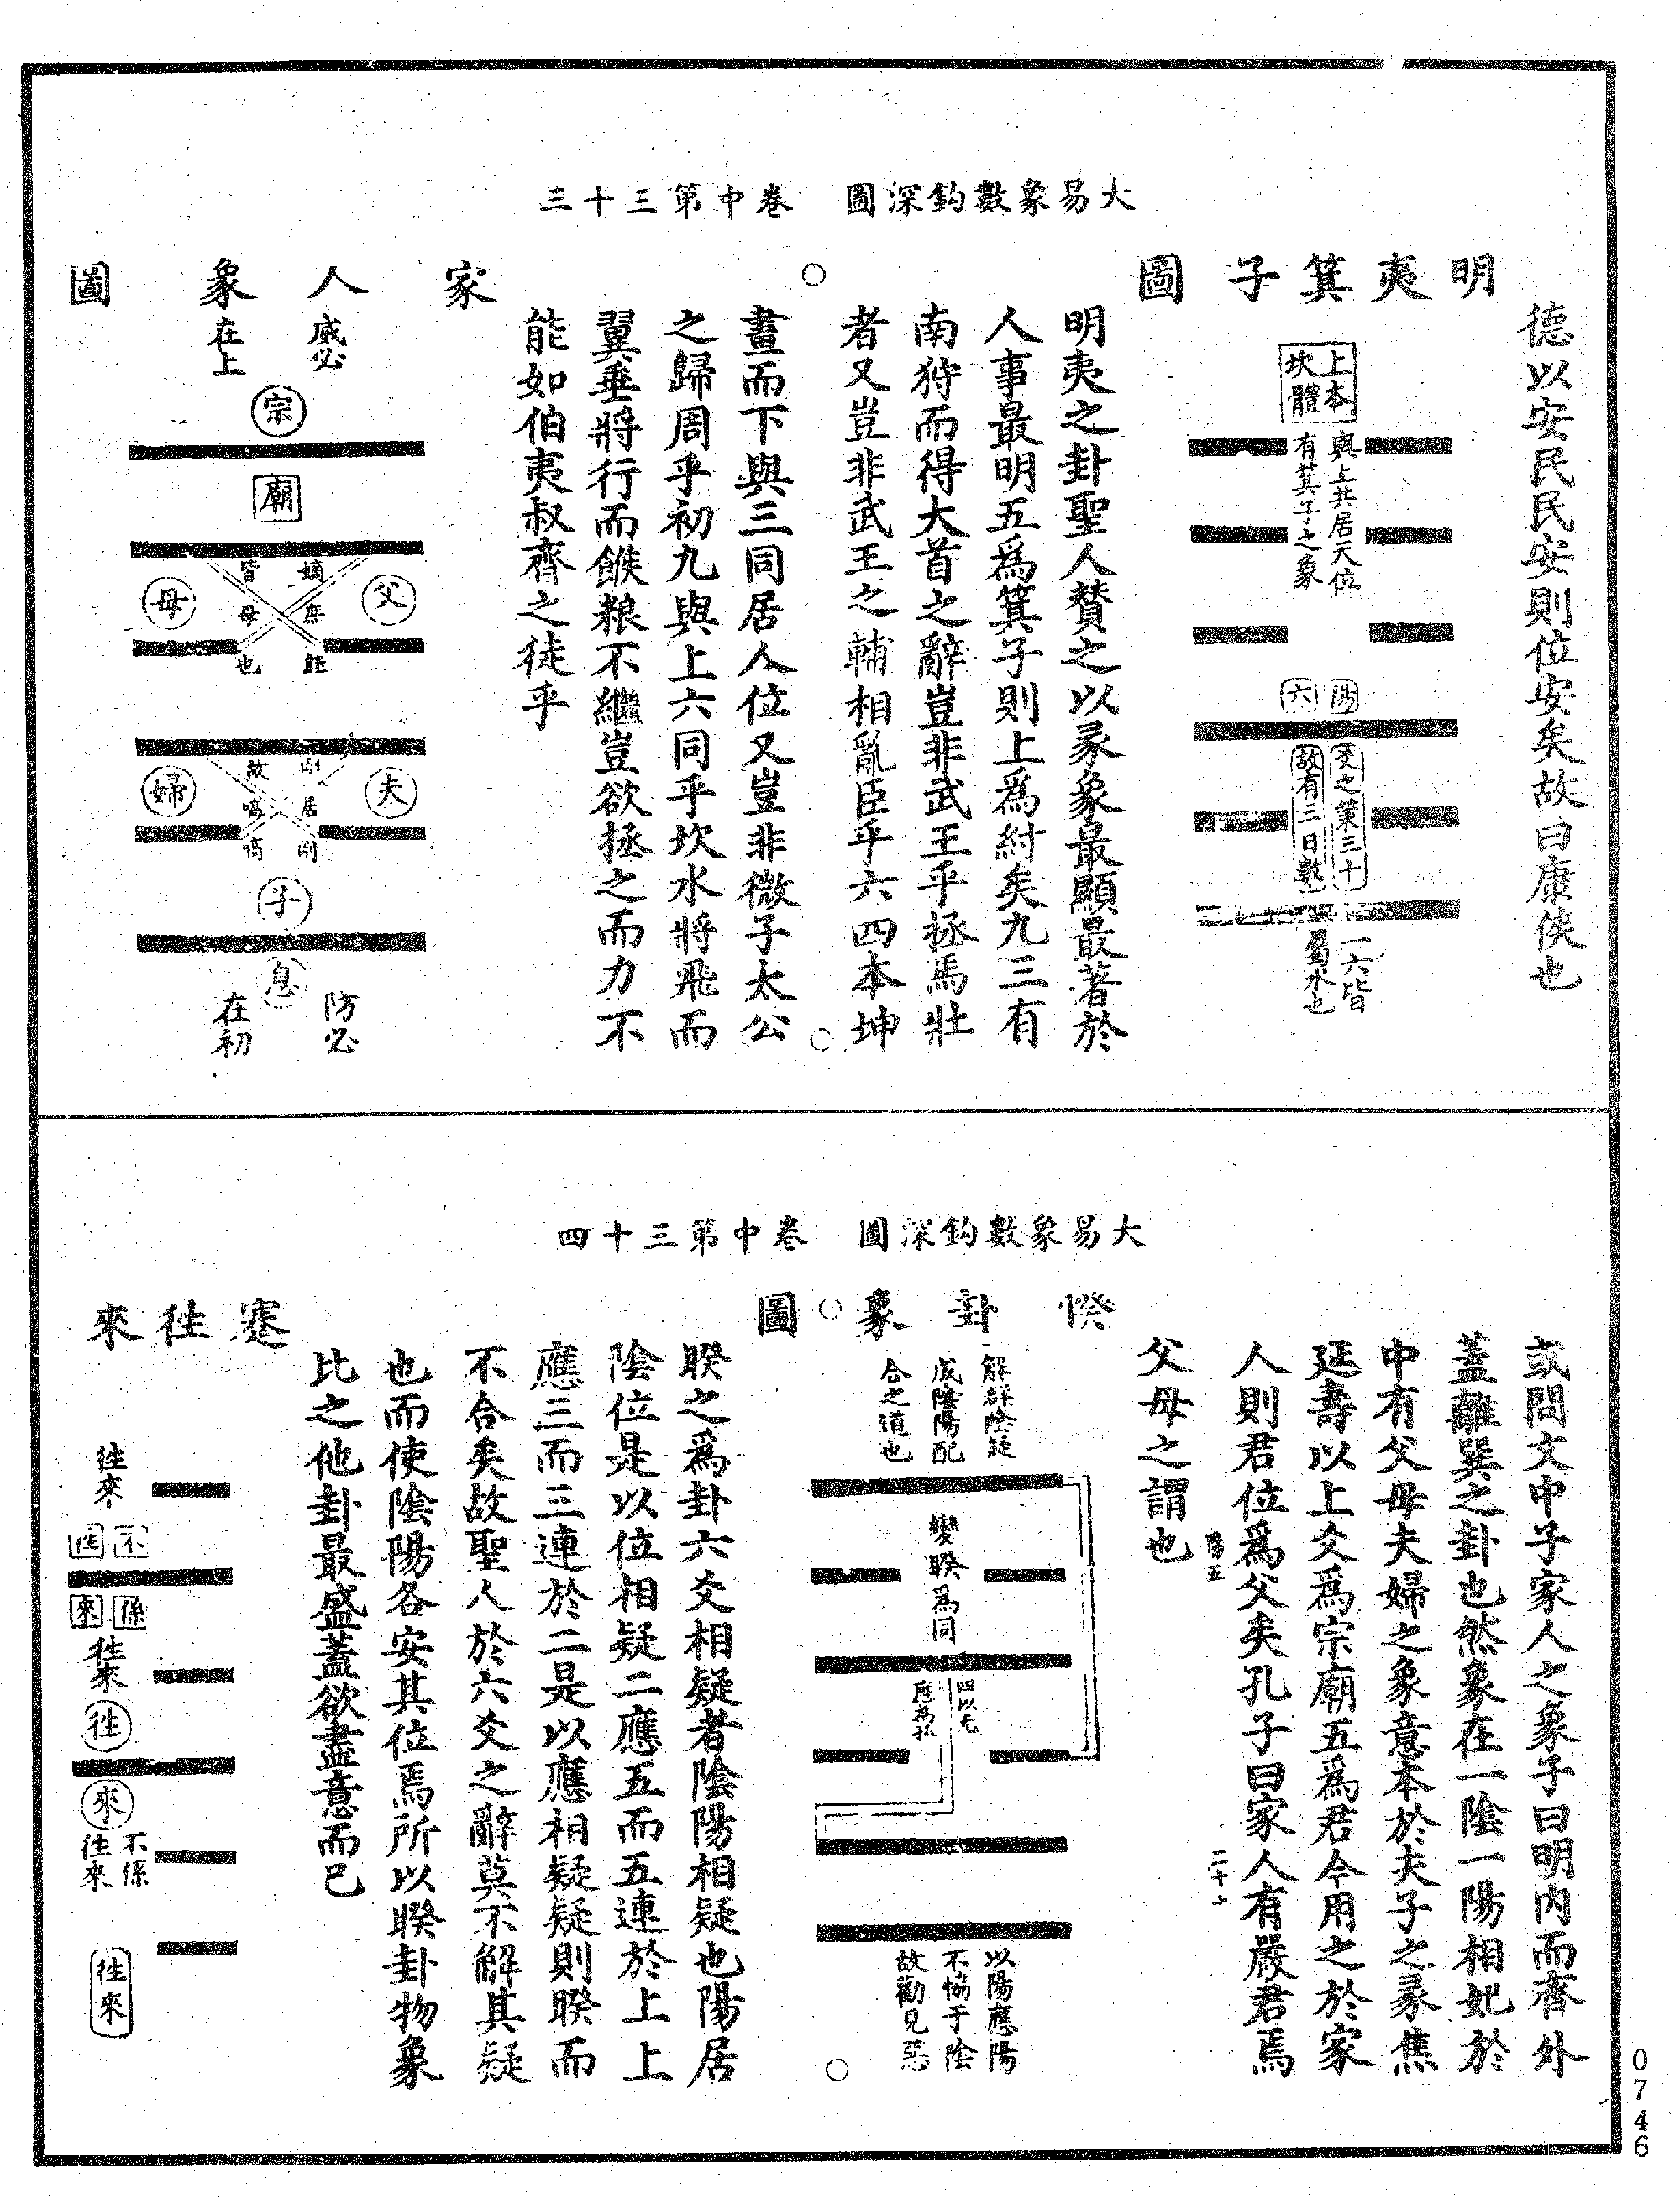 大易象數鈎深圖　卷中第三十三
德以安民民安則位安矣故曰康侯也
明夷箕子圖
上本
坎體
與上共居天位
有箕子之象
陽
六
爻之策三十
故有三日數
一六皆
屬水也
明夷之卦聖人賛之以彖象最顯最著於
人事最明五爲箕子則上爲紂矣九三有
南狩而得大首之辭豈非武王乎拯馬壯
者又豈非武王之輔相亂臣乎六四本坤
畫而下與三同居人位又豈非微子太公
之歸周乎初九與上六同乎坎水將飛而
翼垂將行而餱粮不繼豈欲拯之而力不
能如伯夷叔齊之徒乎
家人象圖
威必
在上
宗
廟
父
母
嫡庶
皆母也
夫
婦
剛居剛
故嗃嗃
子
息
防必
在初
大易象數鈎深圖　卷中第三十四
或問文中子家人之象子曰明内而齊外
蓋離巽之卦也然象在一陰一陽相妃於
中有父母夫婦之象意本於夫子之彖焦
延壽以上爻爲宗廟五爲君今用之於家
人則君位爲父矣孔子曰家人有嚴君焉
陽五
二十七
父母之謂也
睽卦象圖
解群陰疑
成陰陽配
合之道也
變睽爲同
四以无
應爲孤
以陽應陽
不恊于陰
故勸見惡
睽之爲卦六爻相疑者陰陽相疑也陽居
陰位是以位相疑二應五而五連於上上
應三而三連於二是以應相疑疑則睽而
不合矣故聖人於六爻之辭莫不解其疑
也而使陰陽各安其位焉所以睽卦物象
比之他卦最盛蓋欲盡意而已
蹇往來
往來
不往
係來
往來
往
來
不係
往來
往來
0746